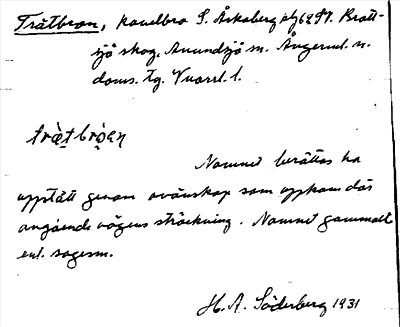 Trätbron, kavelbro S. Åskaberg
sjö skog, Anundsjö sn. Ångerml. n.
doms. tg. Vuorrl. 1.
trätbroen
Namnet berättas ha
uppstått genom ovänskap som uppkom där
angående vägens sträckning. Namnet gammalt
enl. sagesm.
H. A. Söderberg 1931